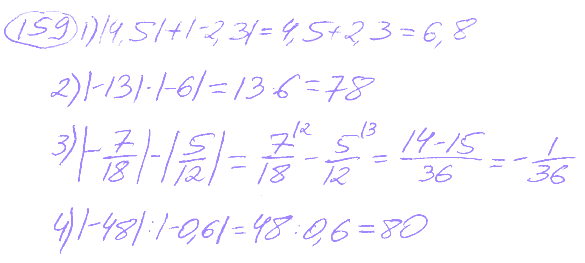 159 1) |4,5|+|-2,3|=4,5+2,3=6,8
2) |-13|·|-6|=13·6=78
3) |-7/18|-|5/12|=7/18^{\2}-5/12^{\3}=(14-15)/36=-1/36
4) |-48|:|-0,6|=48:0,6=80